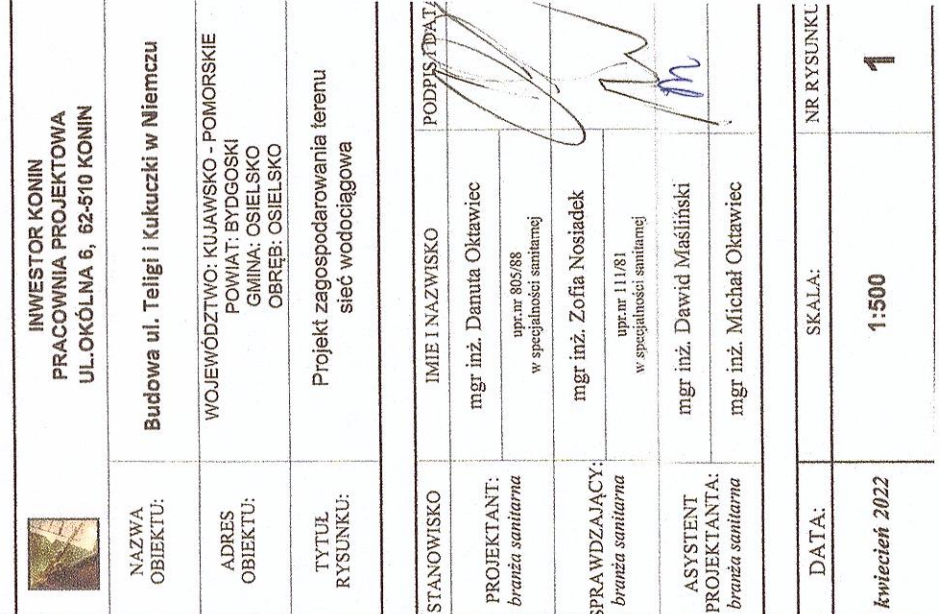 INWESTOR KONIN
PRACOWNIA PROJEKTOWA
UL.OKÓLNA 6, 62-510 KONIN
NAZWA
OBIEKTU:
Budowa ul. Teligi i Kukuczki w Niemczu
ADRES
OBIEKTU:
WOJEWÓDZTWO: KUJAWSKO - POMORSKIE
POWIAT: BYDGOSKI
GMINA: OSIELSKO
OBRĘB: OSIELSKO
TYTUŁ
RYSUNKU:
Projekt zagospodarowania terenu
sieć wodociągowa
STANOWISKO
IMIE I NAZWISKO
PODPIS I DATA
PROJEKTANT:
branża sanitarna
mgr inż. Danuta Oktawiec
upr.nr 805/88
w specjalności sanitarnej
SPRAWDZAJĄCY:
branża sanitarna
mgr inż. Zofia Nosiadek
upr.nr 111/81
w specjalności sanitarnej
ASYSTENT
PROJEKTANTA:
branża sanitarna
mgr inż. Dawid Maśliński
mgr inż. Michał Oktawiec
DATA:
SKALA:
NR RYSUNKU
kwiecień 2022
1:500
1